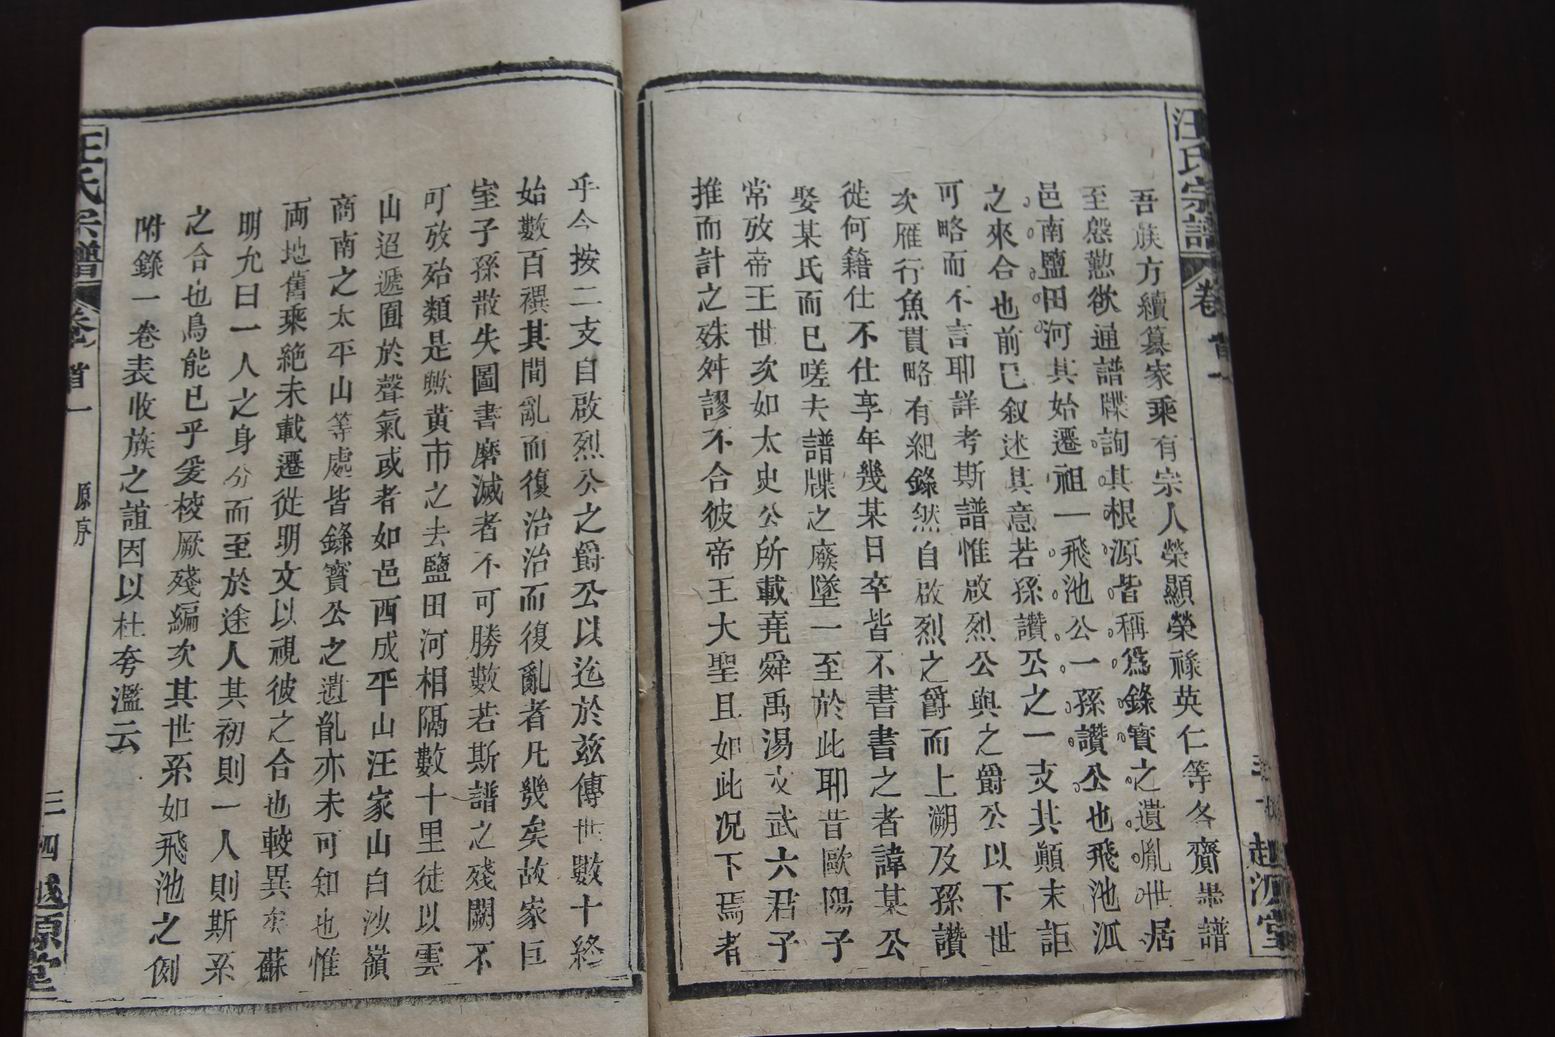 汪氏宗譜 卷首一 越源堂
吾族方續纂家乘有宗人榮顯榮祿英仁等各齎譜
至慇懃欲通譜牒詢其根源皆稱爲錄實之遺胤世居
邑南鹽田河其始遷祖一飛池公一孫讚公也飛池派
之來合也前已叙述其意若孫讚公之一支其顛末詎
可略而不言耶詳考斯譜惟啟烈公與之爵公以下世
次雁行魚貫略有紀錄然自啟烈之爵而上溯及孫讚
徙何籍仕不仕享年幾某日卒皆不書書之者諱某公
娶某氏而已嗟夫譜牒之廢墜一至於此耶昔歐陽子
常攷帝王世次如太史公所載堯舜禹湯文武六君子
推而計之殊舛謬不合彼帝王大聖且如此况下焉者
乎今按二支自啟烈公之爵公以迄於兹傳世數十終
始數百禩其間亂而復治治而復亂者凡幾矣故家巨
室子孫散失圖書磨滅者不可勝數若斯譜之殘闕不
可攷殆類是歟黄市之去鹽田河相隔數十里徒以雲
山迢遞囿於聲氣或者如邑酉成平山汪家山白沙嶺
商南之太平山等處皆錄實公之遺胤亦未可知也惟
兩地舊乘絶未載遷徙明文以視彼之合也較異矣蘇
明允曰一人之身分而至於途人其初則一人則斯系
之合也烏能已乎爰校厥殘編次其世系如飛池之例
附錄一卷表收族之誼因以杜夸濫云
汪氏宗譜 卷首一 原序 三 四 越源堂